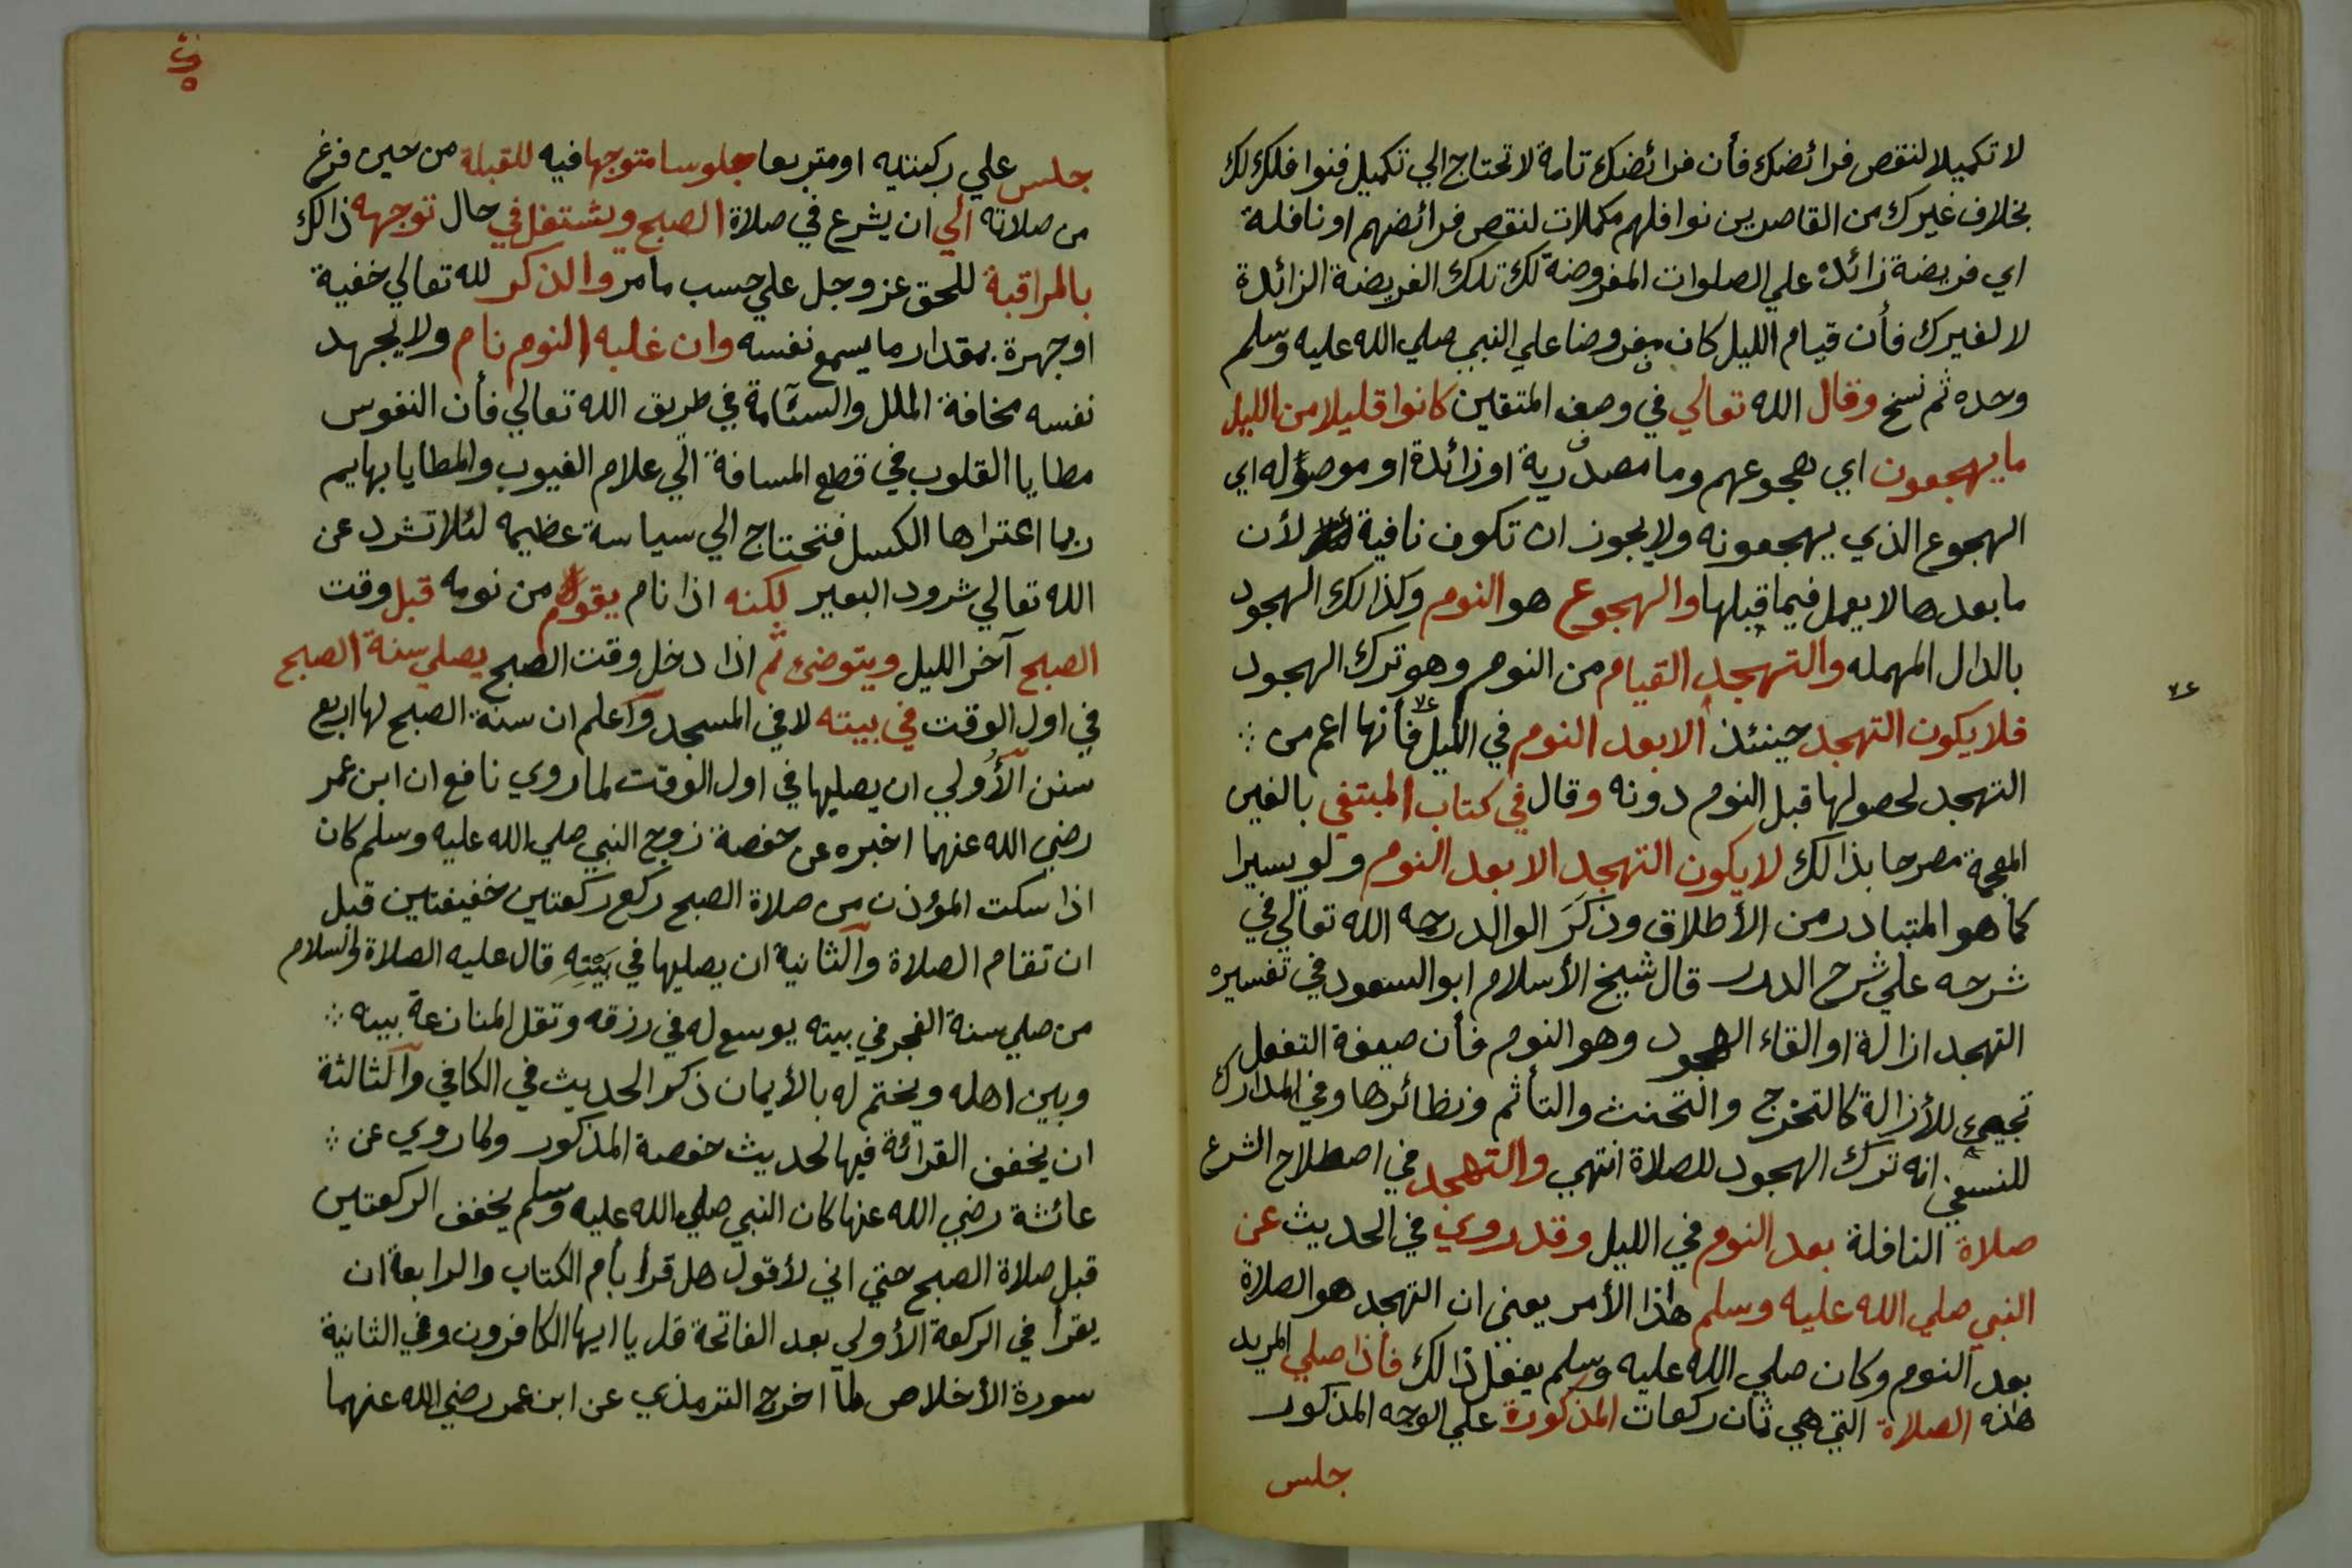 لا تكميلا لنقص فرائضك فأن فرائضك تامة لا تحتاج الي تكميل فنوافلك لك
بخلاف غيرك من القاصرين نوافلهم مكملات لنقص فرائضهم او نافلة
اي فريضة زائدة علي الصلوات المفروضة لك تلك الفريضة الزائدة
لا لغيرك فأن قيام الليل كان مفروضا علي النبي صلي الله عليه وسلم
وحده ثم نسخ وقال الله تعالي في وصف المتقين كانوا قليلا من الليل
ما يهجعون اي هجوعهم وما مصدرية او زائدة او موصوله اي
الهجوع الذي يهجعونه ولا يجوز ان تكون نافية لأن
ما بعدها لا يعمل فيما قبلها والهجوع هو النوم وكذالك الهجود
بالدال المهمله والتهجد القيام من النوم وهو ترك الهجود
فلا يكون التهجد حينئذ الا بعد النوم في الليل فأنها اعم من ؞
التهجد لحصولها قبل النوم دونه وقال في كتاب المبتغي بالغين
المعجمة مصرحا بذالك لا يكون التهجد الا بعد النوم ولو يسيرا
كما هو المتبادر من الأطلاق وذكَرَ الوالد رحمه الله تعالي في
شرحه علي شرح الدرر قال شيخ الأسلام ابو السعود في تفسيره
التهجد ازالة او القاء الهجود وهو النوم فأن صيغة التفعل
تجيئ للأزالة كالتحرج والتحنث والتأثم ونظائرها وفي المدارك
للنسفي انه ترك الهجود للصلاة انتهي والتهجد في اصطلاح الشرع
صلاة النافلة بعد النوم في الليل وقد روي في الحديث عن
النبي صلي الله عليه وسلم هذا الأمر يعني ان التهجد هو الصلاة
بعد النوم وكان صلي الله عليه وسلم يفعل ذالك فأذا صلي المريد
هذه الصلاة التي هي ثمان ركعات المذكورة علي الوجه المذكور
جلس
جلس علي ركبتيه او متربعا جلوسا متوجها فيه للقبلة من حين فرغ
من صلاته الي ان يشرع في صلاة الصبح ويشتغل في حال توجهه ذالك
بالمراقبة للحق عز وجل علي حسب ما مر والذكر لله تعالي خفية
او جهرة بمقدار ما يسمع نفسه وان غلبه النوم نام ولا يجهد
نفسه مخافة الملل والسئامة في طريق الله تعالي فأن النفوس
مطايا القلوب في قطع المسافة الي علام الغيوب والمطايا بهايم
ربما اعتراها الكسل فتحتاج الي سياسة عظيمه لئلا تشرد عن
الله تعالي شرود البعير لكنه اذا نام يقوم من نومه قبل وقت
الصبح آخر الليل ويتوضئ ثم اذا دخل وقت الصبح يصلي سنة الصبح
في اول الوقت في بيته لا في المسجد واعلم ان سنة الصبح لها اربع
سنن الأُولي ان يصليها في اول الوقت لما روي نافع ان ابن عمر
رضي الله عنهما اخبره عن حفصة زوج النبي صلي الله عليه وسلم كان
اذا سكت المؤذن من صلاة الصبح ركع ركعتين خفيفتين قبل
ان تقام الصلاة والثانية ان يصليها في بَيْتِهِ قال عليه الصلاة والسلام
من صلي سنة الفجر في بيته يوسع له في رزقه وتقل المنازعة بينه ؞
وبين اهله ويختم له بالأيمان ذكر الحديث في الكافي والثالثة
ان يخفف القرائة فيها لحديث حفصة المذكور ولما روي عن ؞
عائشة رضي الله عنها كان النبي صلي الله عليه وسلم يخفف الركعتين
قبل صلاة الصبح حتي اني لأقول هل قرأ بأم الكتاب والرابعة ان
يقرأ في الركعة الأولي بعد الفاتحة قل يا ايها الكافرون وفي الثانية
سورة الأخلاص لما اخرج الترمذي عن ابن عمر رضي الله عنهما